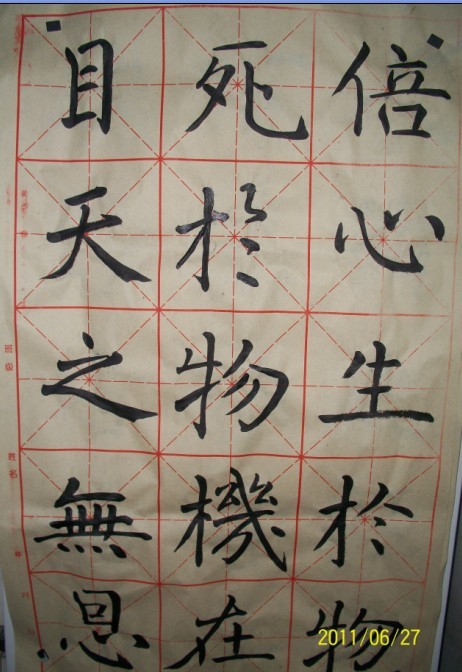 倍心生於物
死於物機在
目天之無恩
班级
姓名
2011/06/27